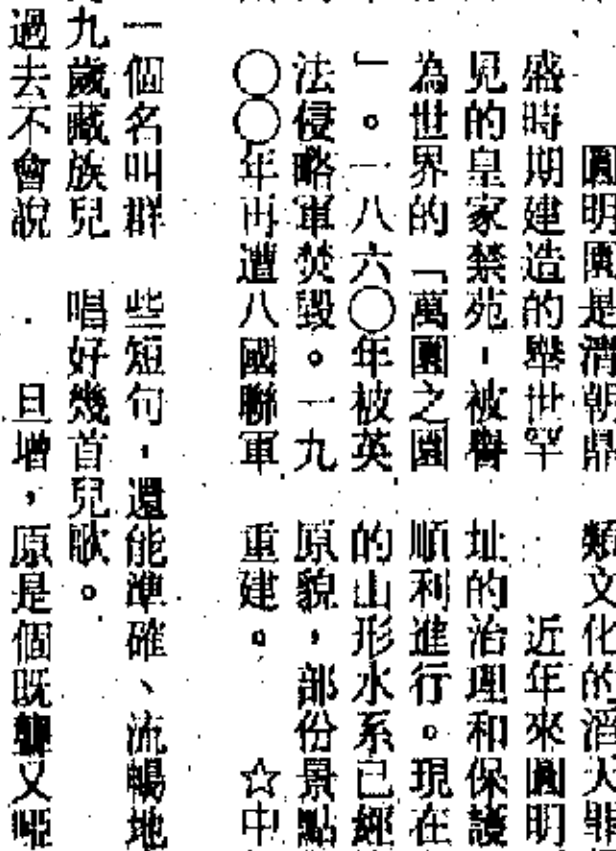 圓明園是清朝鼎
盛時期建造的舉世罕
見的皇家禁苑，被譽
為世界的「萬園之園
」。一八六〇年被英
法侵略軍焚毀。一九
〇〇年再遭八國聯軍
類文化的滔大罪
近年來圓明
址的治理和保護
順利進行。現在
的山形水系已經
原貌，部份景點
重建。
☆中
一個名叫群
九歲藏族兒
過去不會說
些短句，還能準確、流暢地
唱好幾首兒歌。
旦增，原是個既聾又啞